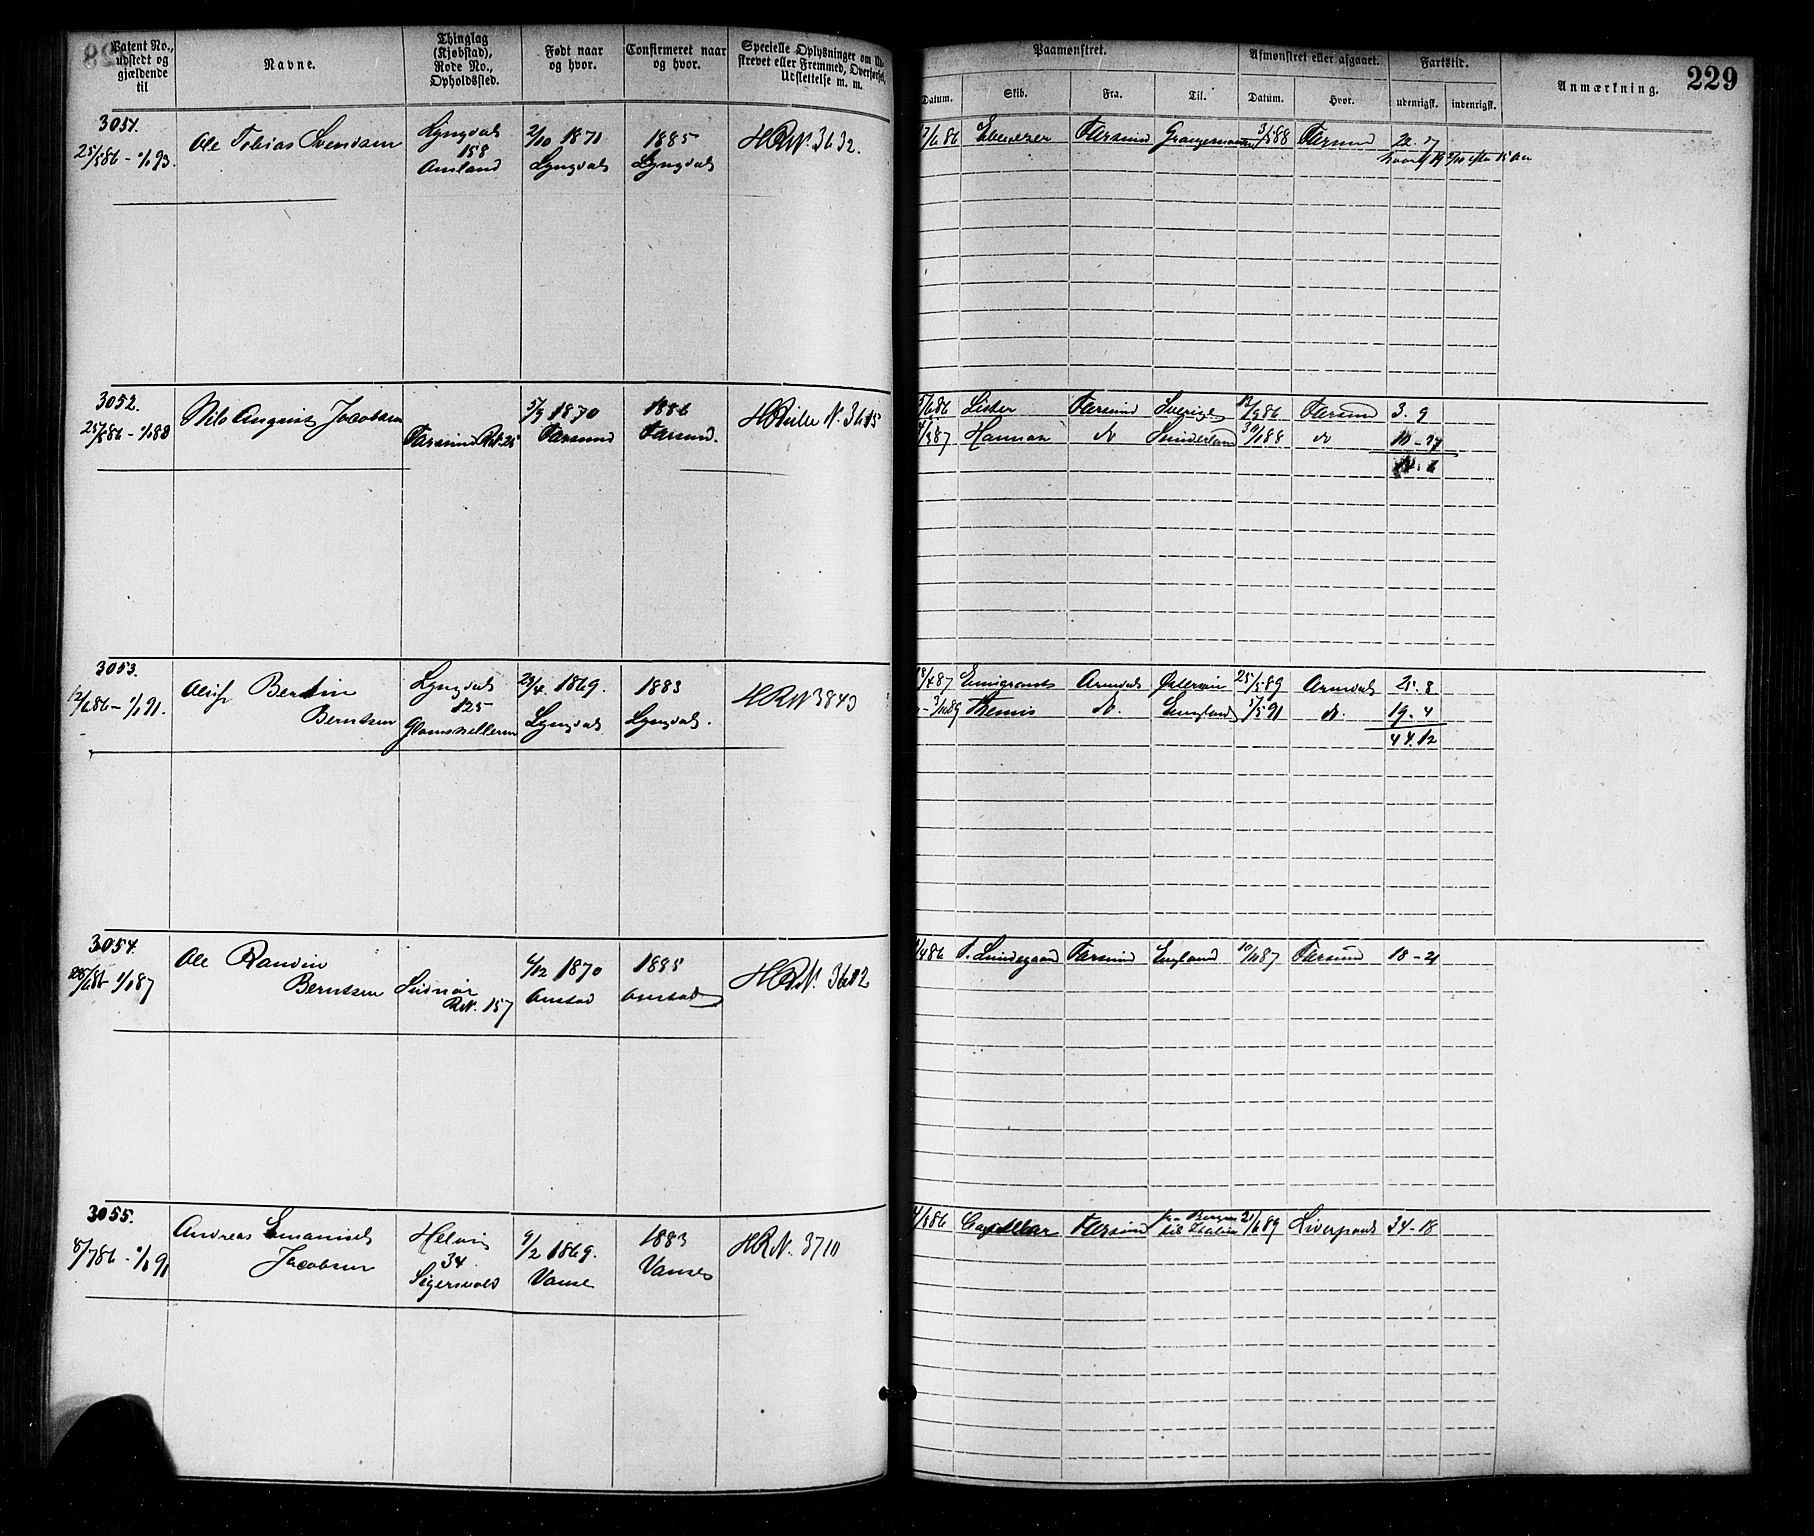 Patent No., udstedt og gjældende til
Navne.
Thinglag (Kjøbstad), Rode No., Opholdssted.
Født naar og hvor.
Confirmeret naar og hvor.
Specielle Oplysninger om Ud-
strevet eller Fremmed, Overførsel,
Udslettelse m. m.
Paamønstret.
Afmønstret eller afgaaet.
Fartstid.
Anmærkning.
229
Datum.
Skib.
Fra.
Til.
Datum.
Hvor.
udenrigsk.
indenrigsk.
3051.
25/5 86 - 1/1 93.
Ole Tobias Svendsen
Lyngdal
158
Amland
2/10 1871
Lyngdal
1885
Lyngdal
HR N. 3632.
/6 86 Ebenezer Farsund 3/5 88 Farsund 22. 27
3052.
25/5 86 - 1/1 88
Nils August Jacobsen
Farsund R.N. 25
5/9 1870
Farsund
1886
Farsund.
HRulle N. 3615
/6 86 Lister Farsund Sverige /9 86 Farsund 3. 9
/3 87 Hannah do Sunderland /1 88 do 10 - 27
14. 6
3053.
12/6 86 - 1/1 91.
Bertin
Berntsen
Lyngdal
125
23/4 1869.
Lyngdal
1883
Lyngdal.
HR N 3843
18/4 87 Emigrant Arendal Østersøen 25/5 89 Arendal 25. 8
- 3/10 89 Themis do. England 7/5 91 do. 19. 4
44. 12
3054.
25/6 86 1/1 87
Ole Randin
Berntsen
R.N. 157
4/12 1870
Onstad
1885
Onstad
HR N. 3612
/4 86 P. Lundegaard Farsund England 10/10 87 Farsund 18 - 21
3055.
8/7 86 - 1/1 91
Andreas Emanuel
Jacobsen
Helvig
34
Sigersvold
9/2 1869.
Vanse
1883
Vanse
HR N. 3710
/8 86 Farsund fra Bergen
til Italien 21/6 89 Liverpool 34 - 18